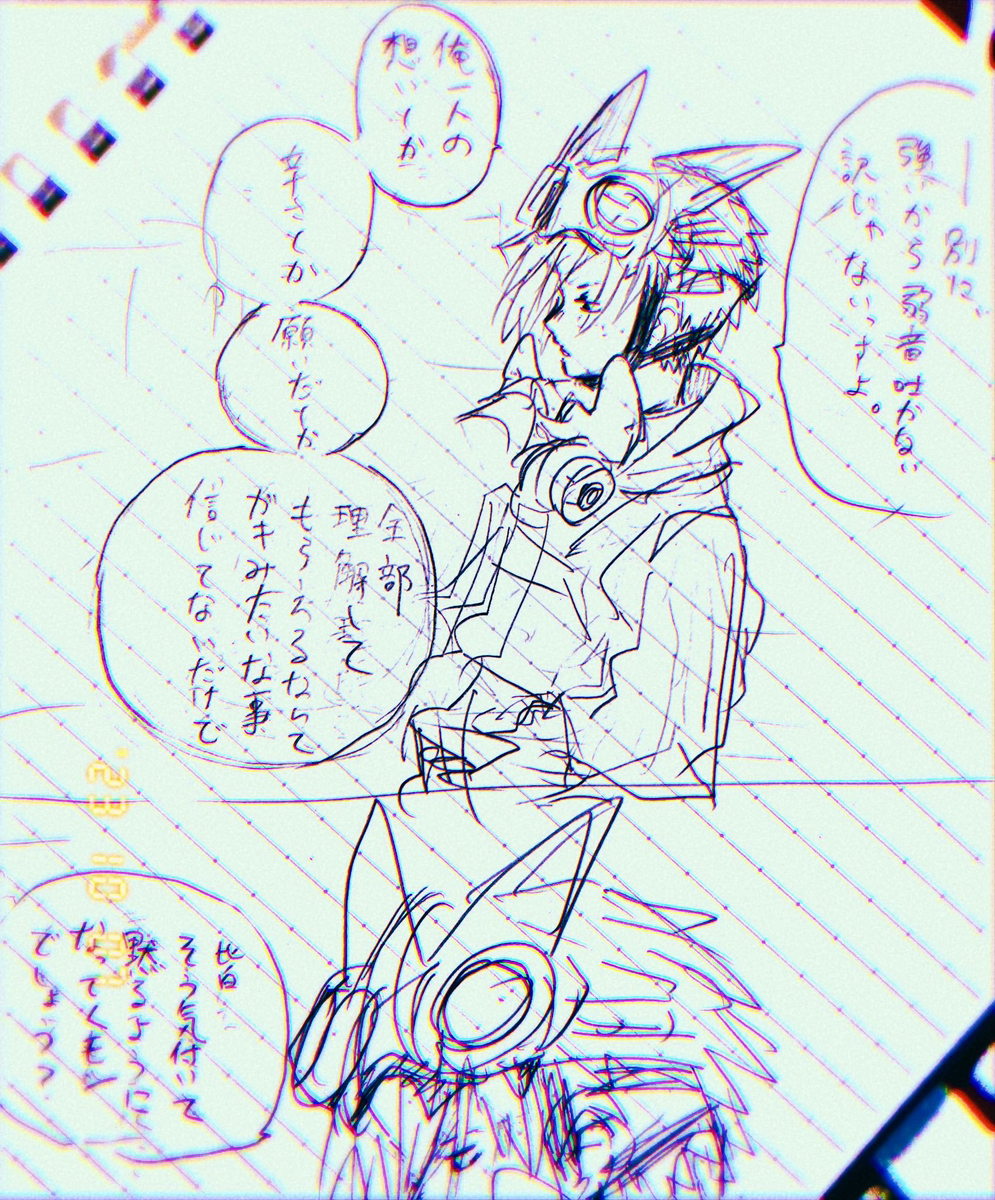 ― 別に、
強いから弱音吐かない
訳じゃないっすよ。
俺一人の
想いとか
辛さとか
願いだとか
全部
理解して
もらえるなんて
ガキみたいな事
信じてないだけで
皆
そう気付いて
黙るように
なってくもん
でしょう?